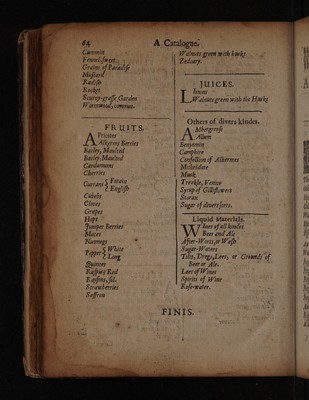 64
A Catalogue.
Cummin
Fennel, sweet
Grains of Paradise
Mustard
Radish
Rocket
Scurvy-grasse, Garden
Wormwood, common.
FRUITS.
APricotes
Alkermes Berries
Barley, Maulted
Barley, Maulted
Cardamums
Cherries
Currans { Forain
English
Cubebs
Cloves
Grapes
Hops
Juniper Berries
Maces
Nutmegs
Pepper { White
Long
Quinces
Raspus Red
Raysins, sol.
Strawberries
Saffron
Walnuts green with husks
Zedoary.
JUICES.
LImons
Walnuts green with the Husks
Others of divers kindes.
AMbergreese
Allum
Benjamin
Camphire
Confection of Alkermes
Mithridate
Musk
Treakle, Venice
Syrup of Gilliflowers
Storax
Sugar of divers sorts.
Liquid Materials.
WInes of all kindes
Beer and Ale
After-Worts, or Wash
Sugar-Waters
Tilts, Dregs, Lees, or Grounds of
Beer or Ale.
Lees of Wines
Spirits of Wine
Rose-water.
FINIS.